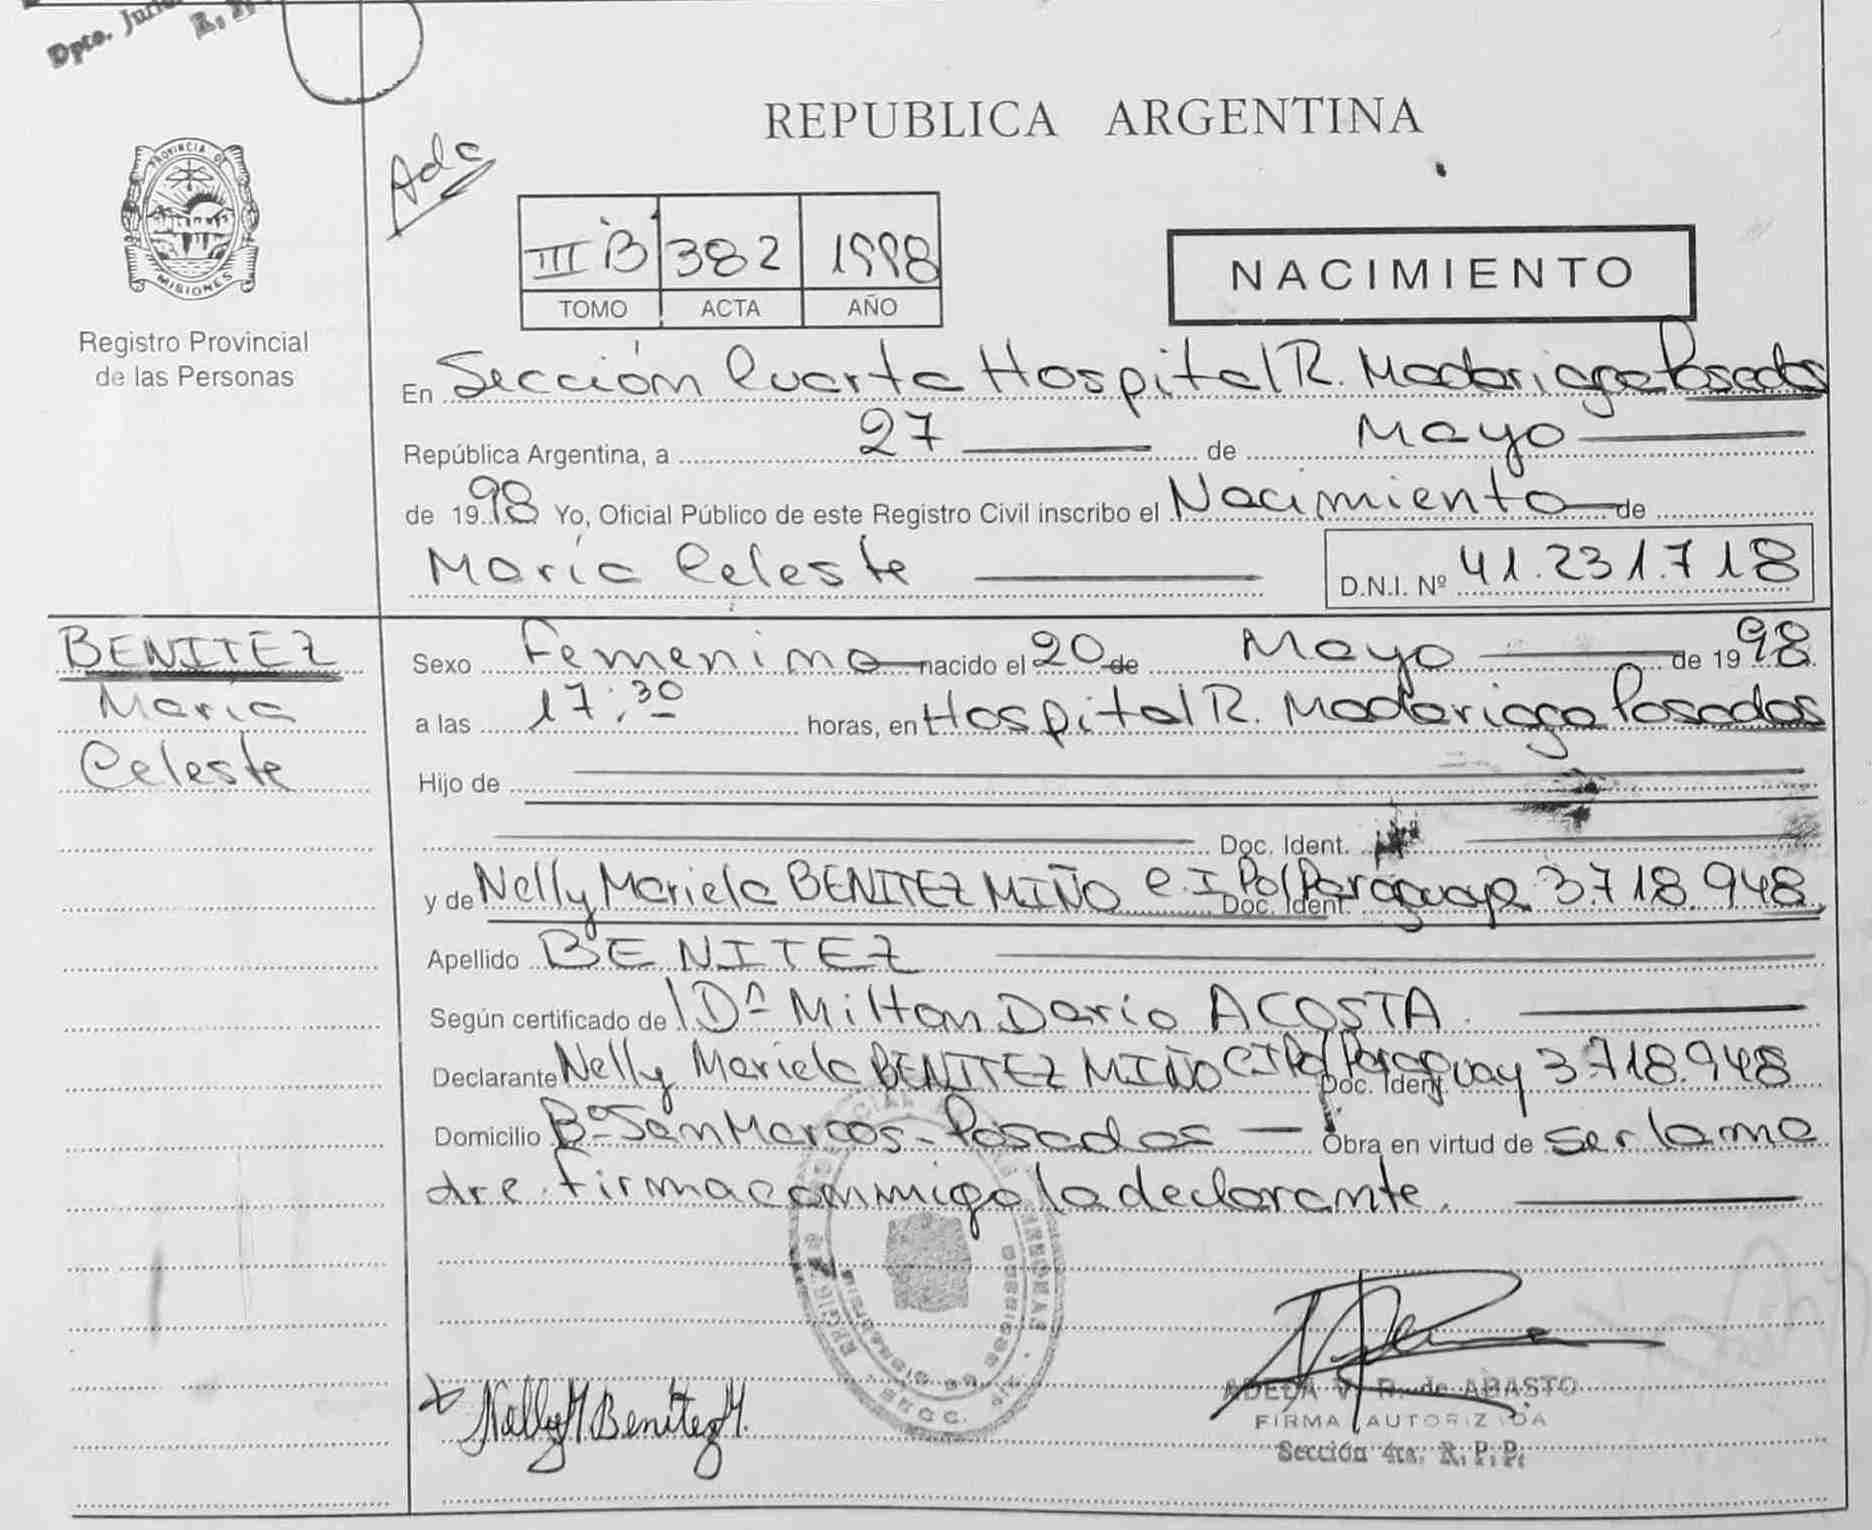 Dpto.
R. P.
REPUBLICA ARGENTINA
PROVINCIA DE
MISIONES
Registro Provincial
de las Personas
III B 382 1998
TOMO ACTA AÑO
NACIMIENTO
En Sección Cuarta Hospital R. Madariaga Posadas
República Argentina, a 27 de Mayo
de 1998 Yo, Oficial Público de este Registro Civil inscribo el Nacimiento de
María Celeste D.N.I. Nº 41.231.718
BENITEZ
María
Celeste
Sexo Femenino nacido el 20 de Mayo de 1998
a las 17:30 horas, en Hospital R. Madariaga Posadas
Hijo de
Doc. Ident.
y de Nelly Mariela BENITEZ MIÑO C.I. Pol Paraguay Doc. Ident. 3.718.948
Apellido BENITEZ
Según certificado de Milton Darío ACOSTA
Declarante Nelly Mariela BENITEZ MIÑO C I Pol Paraguay Doc. Ident. 3.718.948
Domicilio Bº San Marcos - Posadas Obra en virtud de ser la ma
dre. firma conmigo la declarante.
Nelly M Benitez M.
V. R. de ABASTO
FIRMA AUTORIZADA
Sección 4ta. R. P. P.